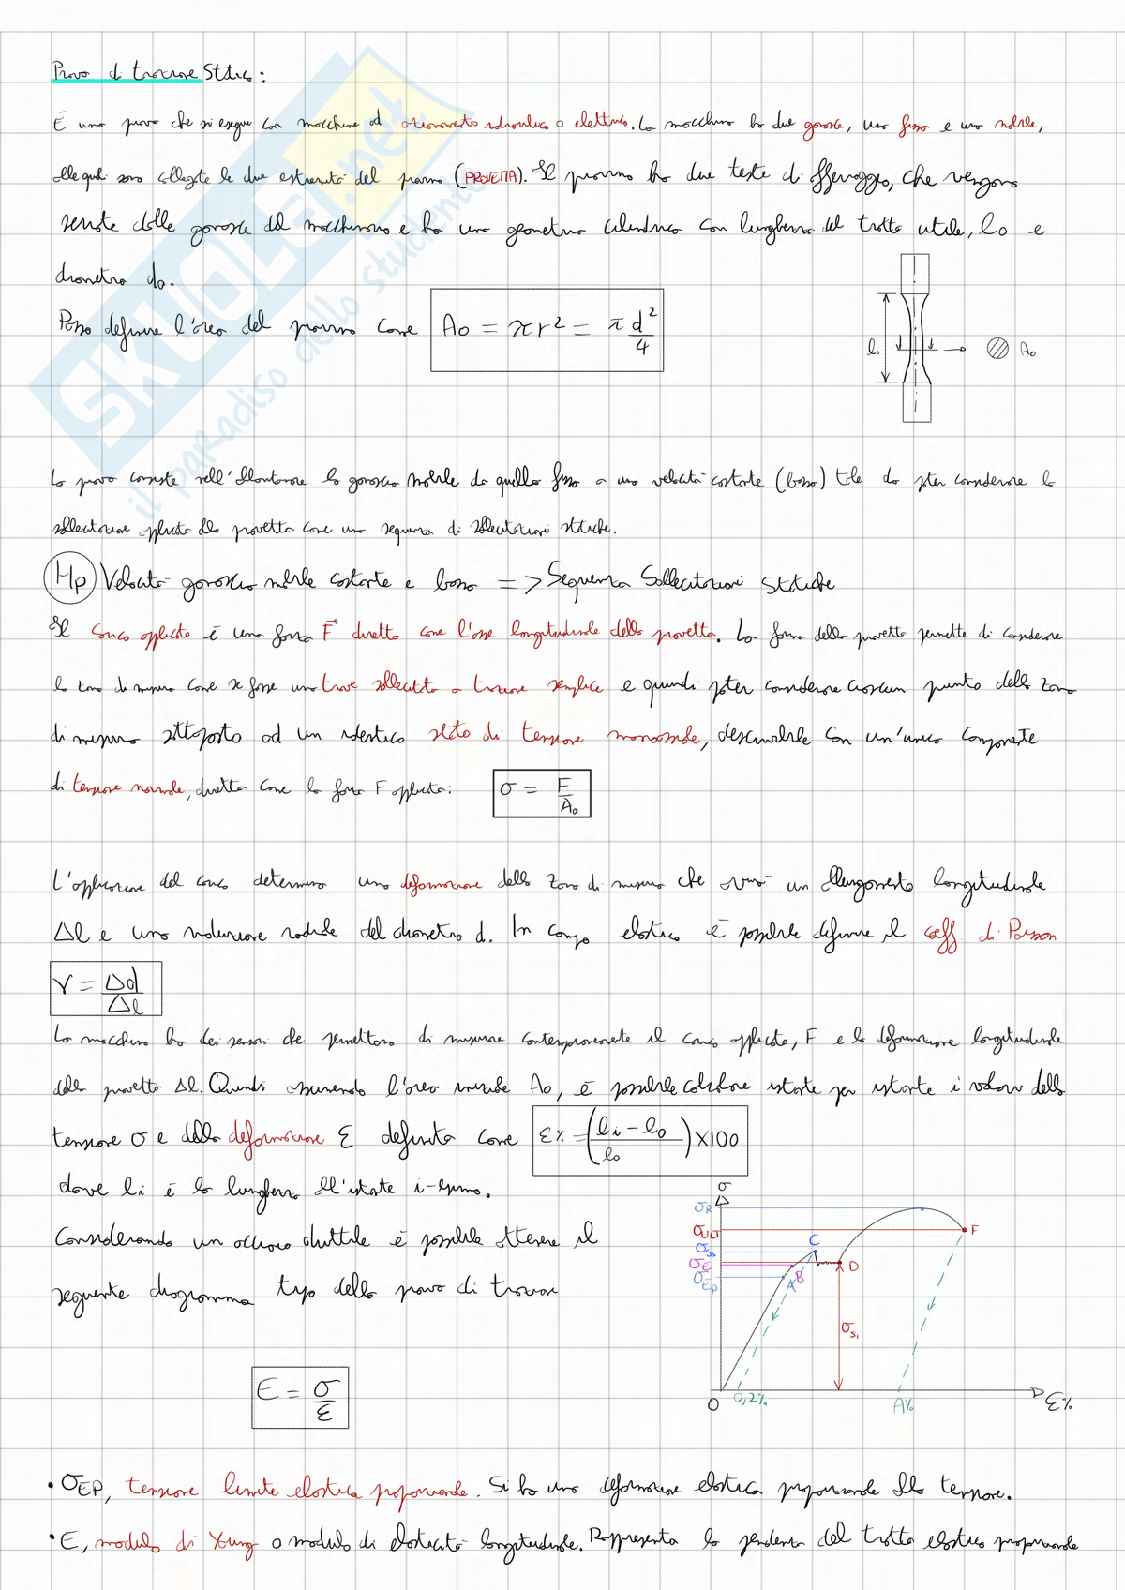 Prova di trazione Statica:
È una prova che si esegue con macchine ad azionamento idraulico o elettrico. La macchina ha due ganasce, una fissa e una mobile,
alle quali sono collegate le due estremità del provino (PROVETTA). Il provino ha due teste di afferraggio, che vengono
serrate dalle ganasce del macchinario e ha una geometria cilindrica con lunghezza del tratto utile, l0 e
diametro d0.
Posso definire l'area del provino come A0 = πr² = π d²/4
l A0
La prova consiste nell'allontanare la ganascia mobile da quella fissa a una velocità costante (bassa) tale da poter considerare la
sollecitazione applicata alla provetta come una sequenza di sollecitazioni statiche.
Hp Velocità ganascia mobile costante e bassa => Sequenza Sollecitazioni statiche
Il carico applicato è una forza F diretta come l'asse longitudinale della provetta. La forma della provetta permette di considerare
la zona di misura come se fosse una trave sollecitata a trazione semplice e quindi poter considerare ciascun punto della zona
di misura sottoposto ad un identico stato di tensione monoassiale, descrivibile con un'unica componente
di tensione normale, diretta come la forza F applicata: σ = F/A0
L'applicazione del carico determina una deformazione della zona di misura che avrà un allungamento longitudinale
Δl e una riduzione radiale del diametro d. In campo elastico è possibile definire il coeff di Poisson
ν = Δd/Δl
La macchina ha dei sensori che permettono di misurare contemporaneamente il carico applicato, F e la deformazione longitudinale
della provetta Δl. Quindi assumendo l'area iniziale A0, è possibile calcolare istante per istante i valori della
tensione σ e della deformazione ε definita come ε% = (li - l0 / l0) x100
dove li è la lunghezza all'istante i-esimo.
Considerando un acciaio duttile è possibile ottenere il
seguente diagramma tipo della prova di trazione
E = σ/ε
σ
σR
σULT
σs
σE
σEP
A B C D F
σs1
O 0,2% A% ε%
• σEP, tensione limite elastica proporzionale. Si ha una deformazione elastica proporzionale alla tensione.
• E, modulo di Young o modulo di elasticità longitudinale. Rappresenta la pendenza del tratto elastico proporzionale
SKUOLA.net
il paradiso dello studente